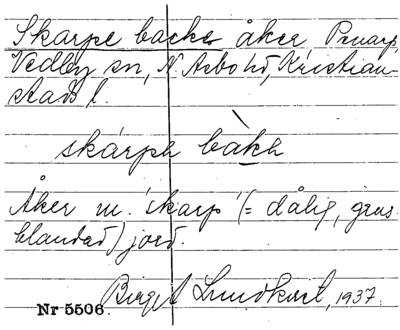 Skarpe backe åker Prnarp,
Vedby sn, N. Åsbo hd, Kristian-
stads l.
skárpə bàkə
Åker m. 'skarp' (= dålig, grus-
blandad) jord.
Birgit Lundkvist, 1937.
Nr 5506.